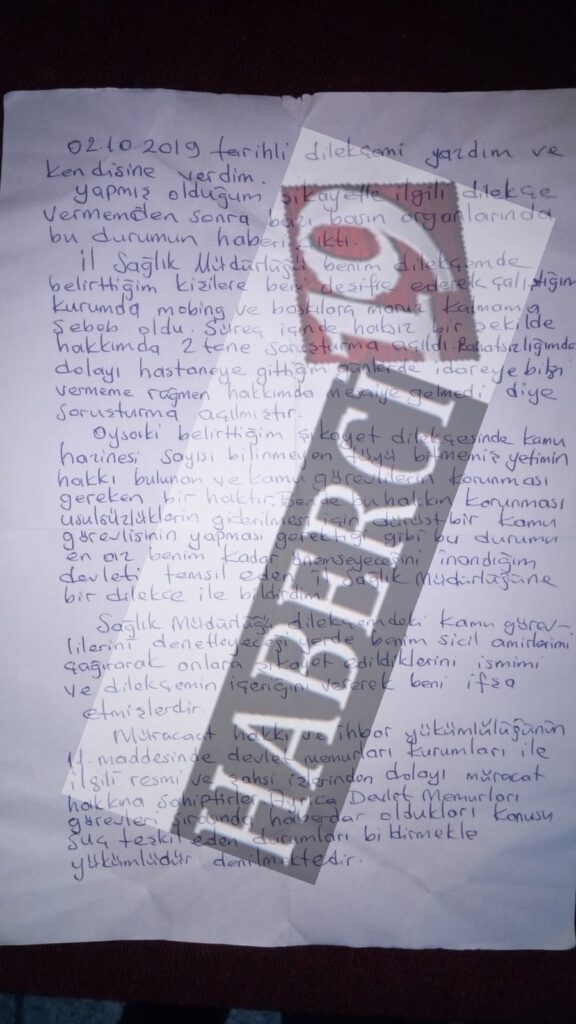 02.10.2019 tarihli dilekçemi yazdım ve
kendisine verdim.
yapmış olduğum şikayetle ilgili dilekçe
vermemden sonra bazı basın organlarında
bu durumun haberi çıktı.
İl Sağlık Müdürlüğü benim dilekçemde
belirttiğim kişilere beni deşifre ederek çalıştığım
kurumda mobing ve baskılara maruz kalmama
sebeb oldu. Süreç içinde haksız bir şekilde
hakkımda 2 tane soruşturma açıldı. Rahatsızlığımdan
dolayı hastaneye gittiğim günlerde idareye bilgi
vermeme rağmen hakkımda mesaiye gelmedi diye
soruşturma açılmıştır.
Oysaki belirttiğim şikayet dilekçesinde kamu
hazinesi sayısı bilinmeyen tüyü bitmemiş yetimin
hakkı bulunan ve kamu görevlilerin korunması
gereken bir haktır. Bende bu hakkın korunması
usulsüzlüklerin giderilmesi için dürüst bir kamu
görevlisinin yapması gerektiği gibi bu durumu
en az benim kadar önemseyeceğini inandığım
devleti temsil eden İl Sağlık Müdürlüğüne
bir dilekçe ile bildirdim.
Sağlık Müdürlüğü dilekçemdeki kamu görev-
lilerini denetleyeceği yerde benim sicil amirlerimi
çağırarak onlara şikayet edildiklerini ismimi
ve dilekçemin içeriğini vererek beni ifşa
etmişlerdir.
Müracaat hakkı ve ihbar yükümlülüğünün
11. maddesinde devlet memurları kurumları ile
ilgili resmi ve şahsi işlerinden dolayı müracat
hakkına sahiptirler. Ayrıca Devlet Memurları
görevleri sırasında haberdar oldukları konusu
suç teşkil eden durumları bildirmekle
yükümlüdür denilmektedir.
HABERCİ19